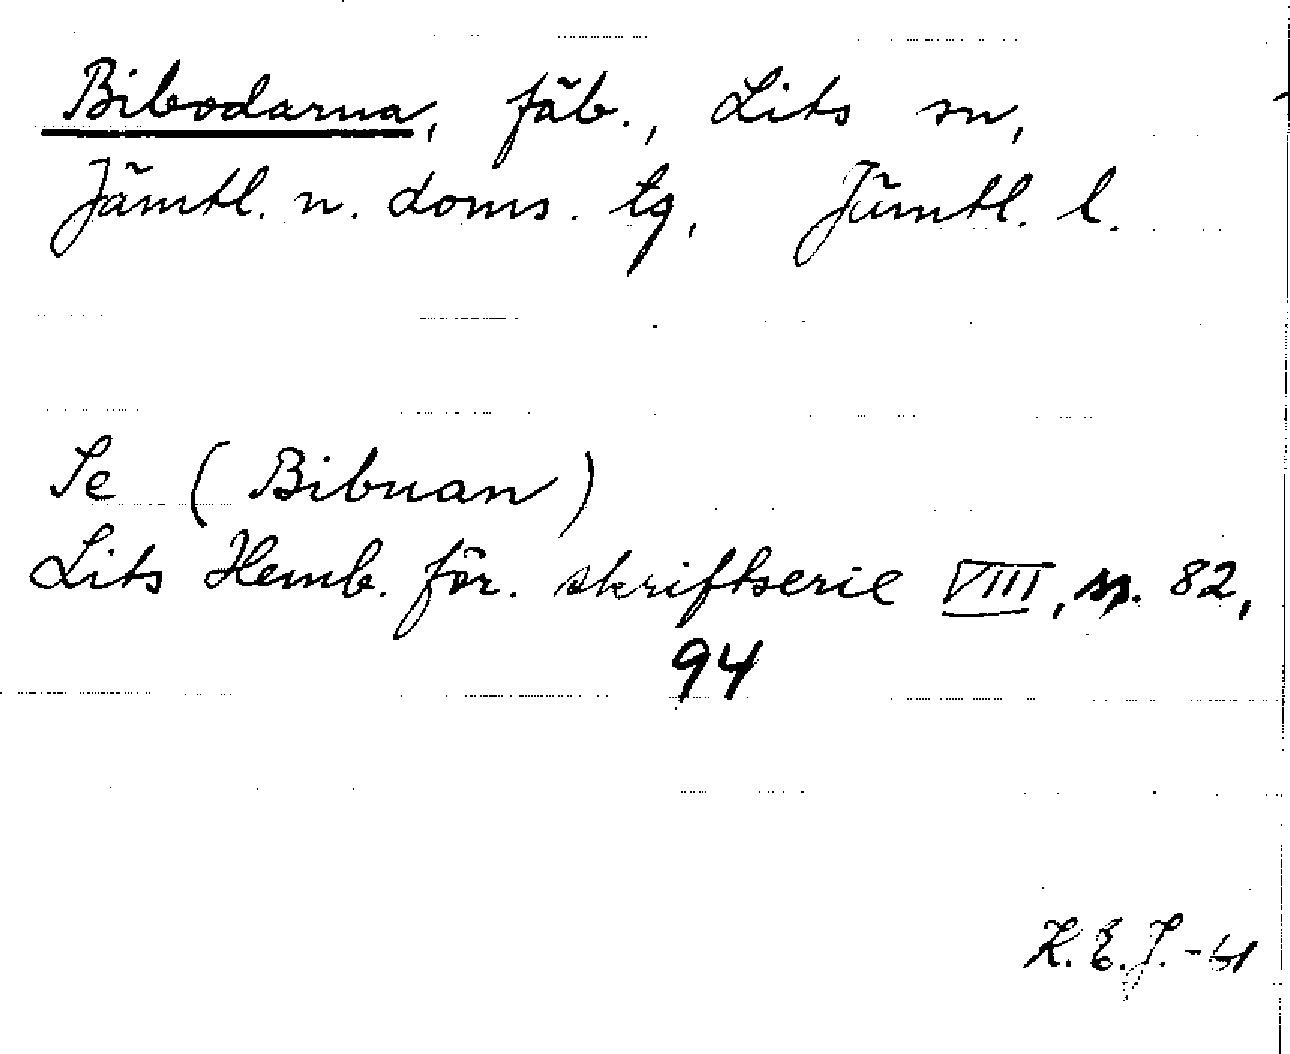 Bibodarna, fäb., Lits sn,
Jämtl. n. doms. tg, Jämtl. l.
Se (Bibuan)
Lits Hemb. för. skriftserie VIII, s. 82,
94
K.E.J.-61